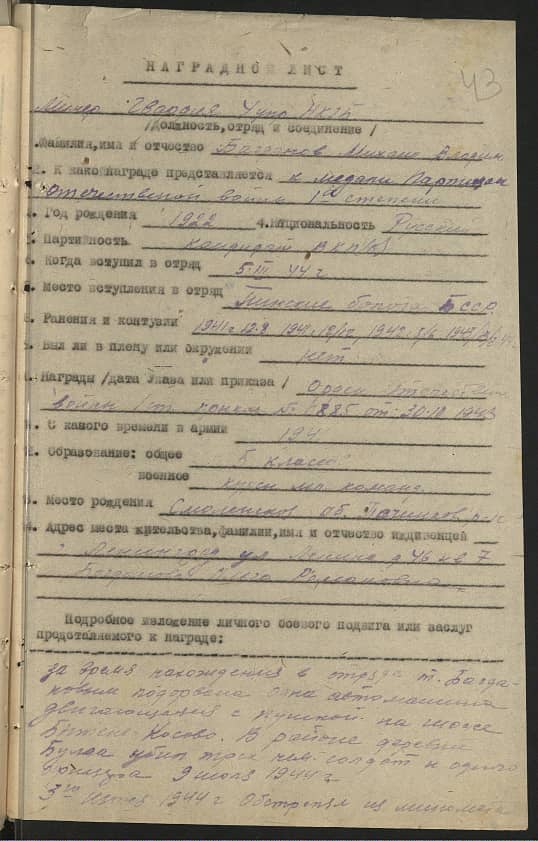 43
НАГРАДНОЙ ЛИСТ
Минер Гвардия
/Должность, отряд и соединение /
.Фамилия,имя и отчество Багданов Михаил
2. К какой награде представляется к медали Партизан
отечественной войны 1ой степени
Год рождения 1922 4.Национальность Русский
Партийность кандидат ВКП(б)
Когда вступил в отряд 5.III 44 г
Место вступления в отряд Пинские болота БССР
8. Ранения и контузии 1941 г 12.8
Был ли в плену или окружении нет
Награды /дата Указа или приказа / Орден
войны 1 ст. 1943
С какого времени в армии 194
2. Образование: общее 5 классов
военное курсы мл. команд.
3. Место рождения Смоленская об.
4. Адрес места жительства,фамилии,имя и отчество иждивенцей
г Ленинград ул Ленина д 46 кв 7
Романовна
Подробное изложение личного боевого подвига или заслуг
представляемого к награде:
за время нахождения в отряде т. Багда-
новым подорвана одна автомашина
двигающаяся с пушкой на шоссе
Косово. В районе деревни
Булла убил трех нем. солдат и одного
9 июля 1944 г
3го 1944 г Обстрелял из миномета